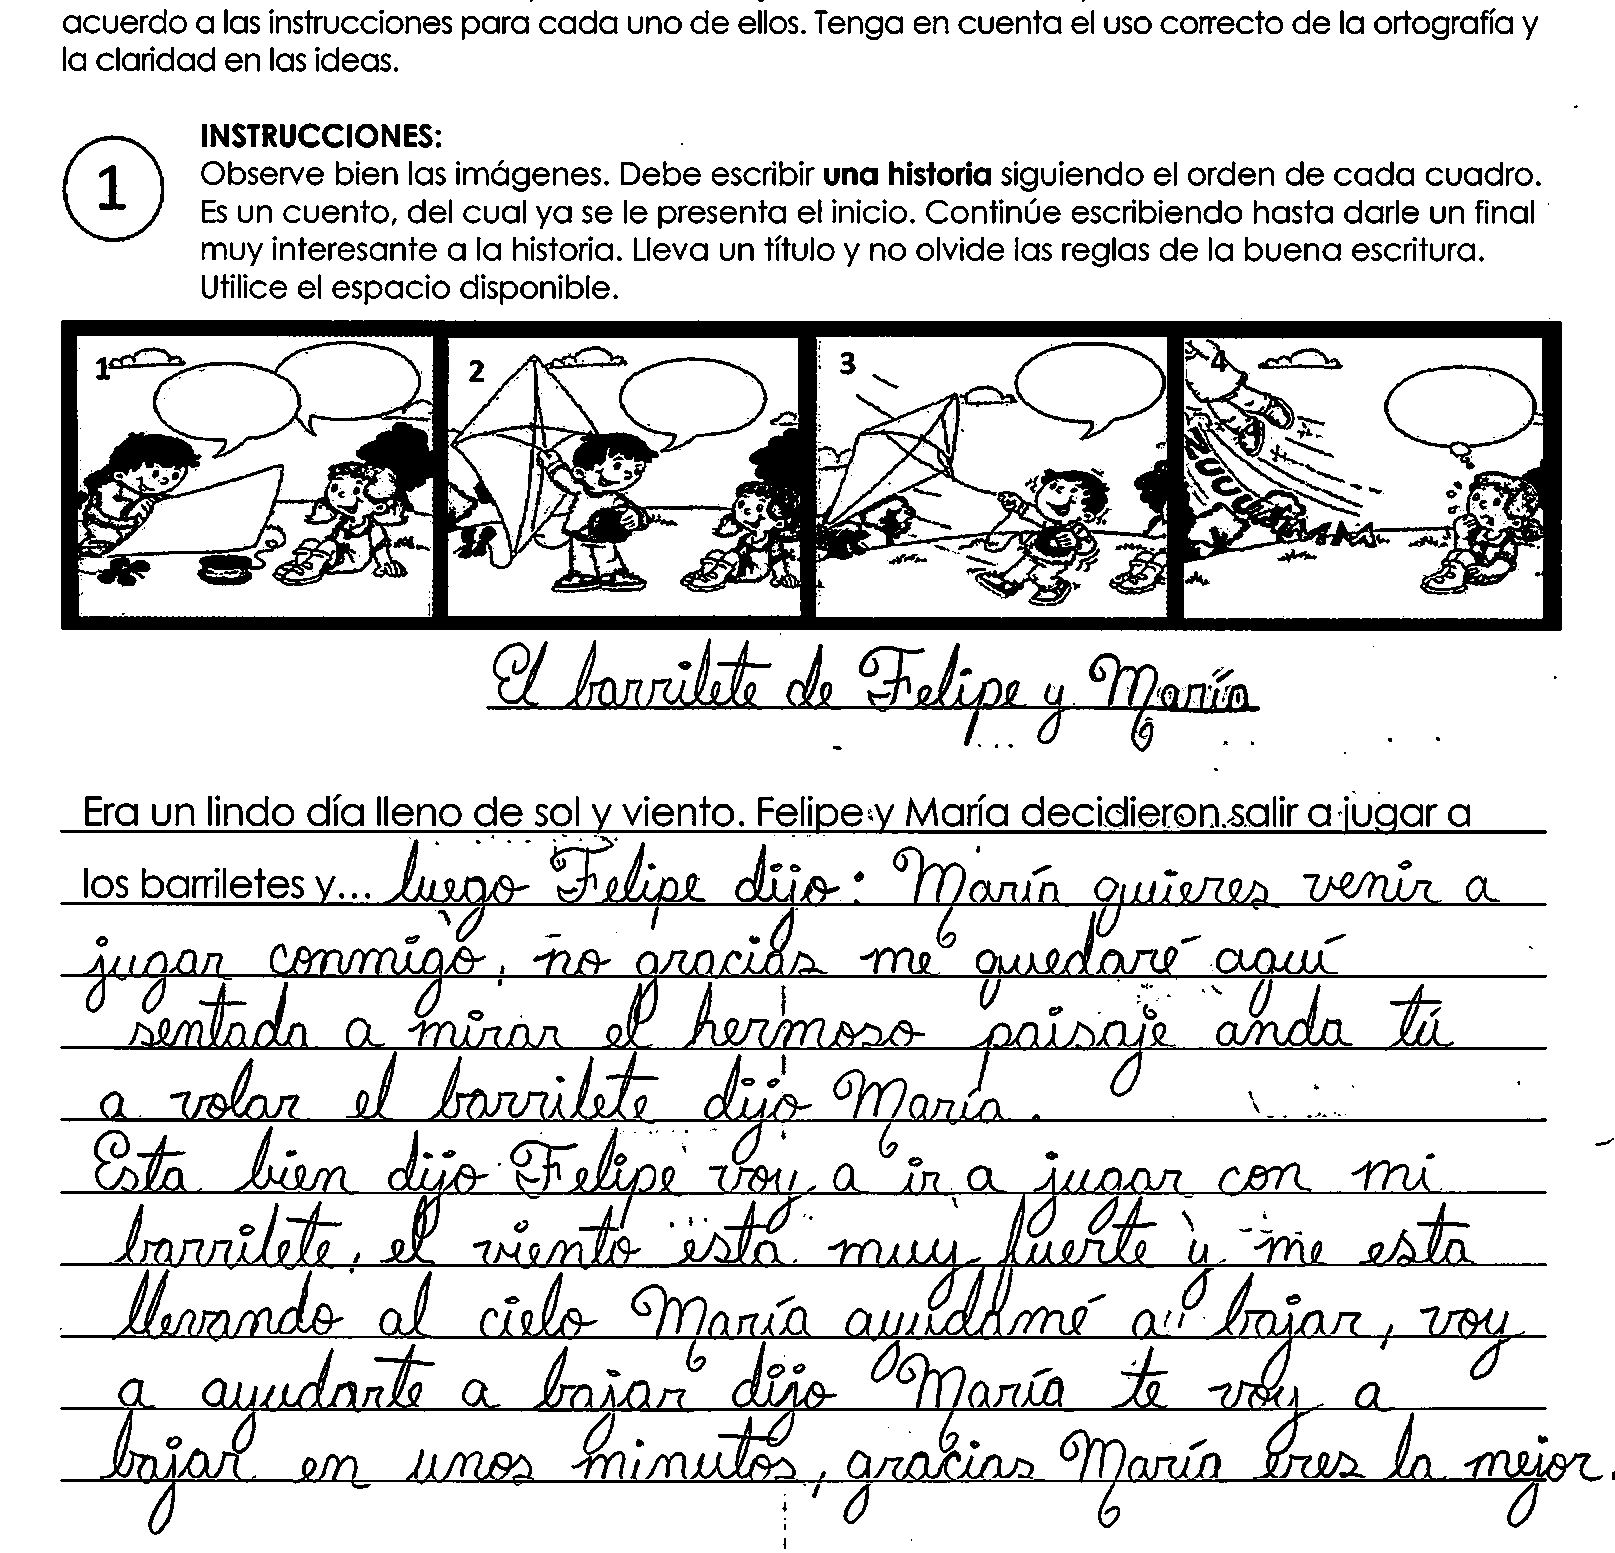 acuerdo a las instrucciones para cada uno de ellos. Tenga en cuenta el uso correcto de la ortografía y
la claridad en las ideas.
1
INSTRUCCIONES:
Observe bien las imágenes. Debe escribir una historia siguiendo el orden de cada cuadro.
Es un cuento, del cual ya se le presenta el inicio. Continúe escribiendo hasta darle un final
muy interesante a la historia. Lleva un título y no olvide las reglas de la buena escritura.
Utilice el espacio disponible.
1 2 3 4
El barrilete de Felipe y María
Era un lindo día lleno de sol y viento. Felipe y María decidieron salir a jugar a
los barriletes y... luego Felipe dijo: María quieres venir a
jugar conmigo, no gracias me quedaré aquí
sentada a mirar el hermoso paisaje anda tú
a volar el barrilete dijo María.
Esta bien dijo Felipe voy a ir a jugar con mi
barrilete, el viento esta muy fuerte y me esta
llevando al cielo María ayudamé a bajar, voy
a ayudarte a bajar dijo María te voy a
bajar en unos minutos, gracias María eres la mejor.